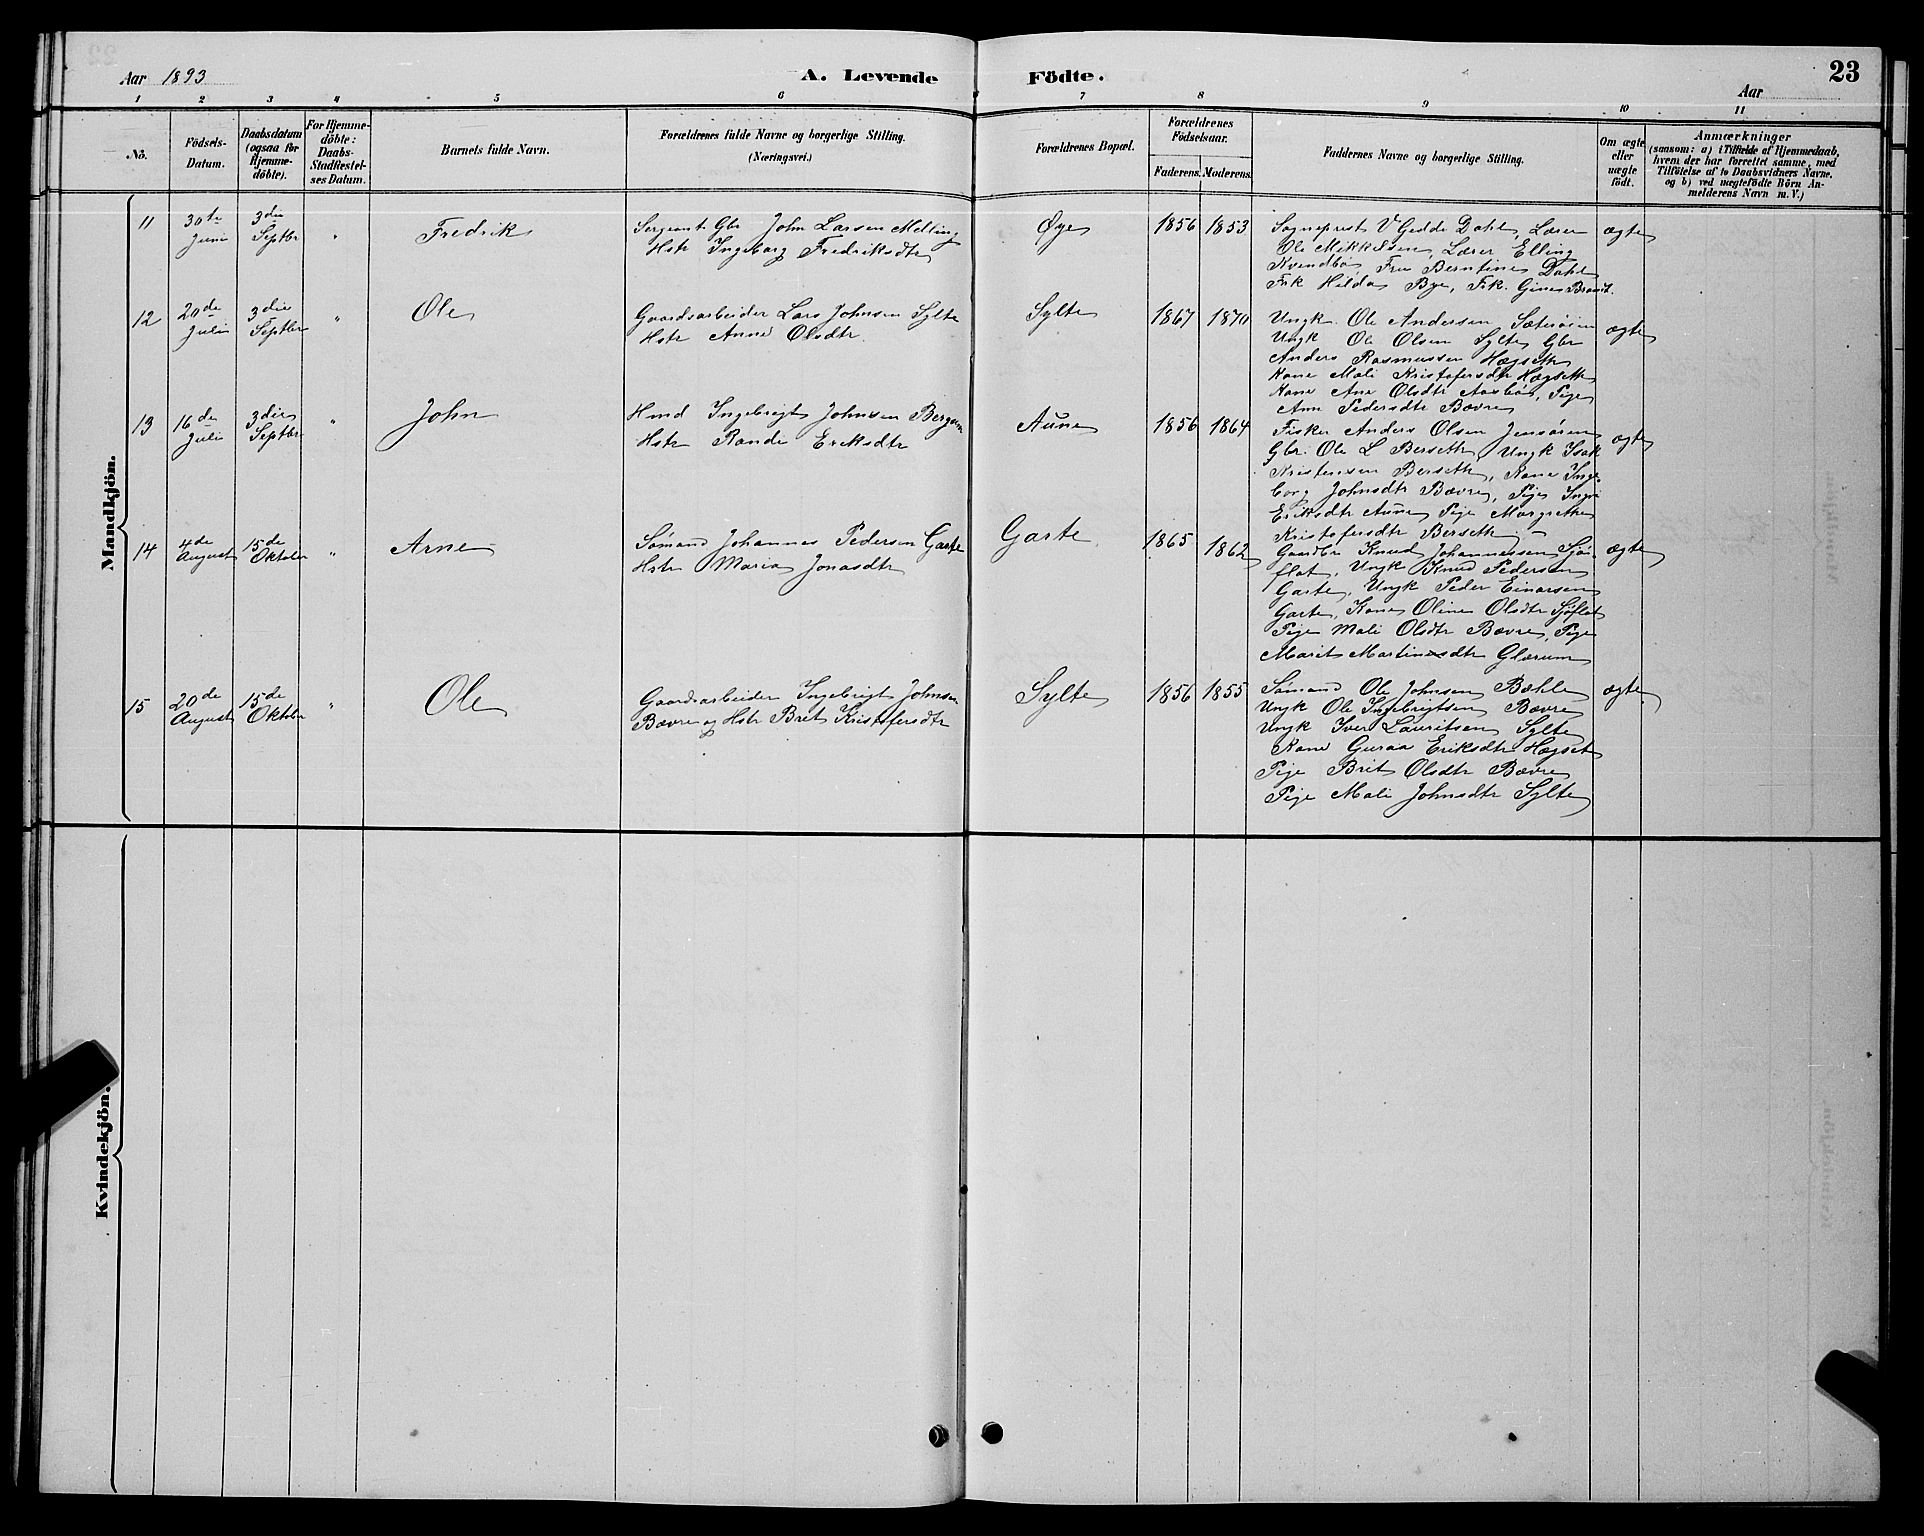 Aar 1893
A. Levende Födte.
Aar
23
1 2 3 4 5 6 7 8 9 10 11
Nö.
Födsels-Datum.
Daabsdatum (ogsaa for Hjemme-döbte).
For Hjemme-döbte: Daabs-Stadfæstel-ses Datum.
Barnets fulde Navn.
Forældrenes fulde Navne og borgerlige Stilling.
(Næringsvei.)
Forældrenes Bopæl.
Forældrenes Födselsaar.
Faderens. Moderens.
Faddernes Navne og borgerlige Stilling.
Om ægte eller uægte födt.
Anmærkninger
(saasom: a) i Tilfælde af Hjemmedaab,
hvem der har forrettet samme, med
Tilföielse af to Daabsvidners Navne.
og b) ved uægtefödte Börn An-
melderens Navn m. V.)
Mandkjön.
11
30te Juni
3die Septbr
"
Fredrik
Sergeant Gbr John Larsen Melling
Hstr Ingeborg Fredriksdtr
Øye
1856 1853
Sogneprest V Gedde Dahl, Lærer
Ole Mikkelsen, Lærer Elling
Kvendbø, Fru Berntine Dahl
Frk Hilda Bye, Frk. Gina Brandt.
ægte
12
20de Juli
3die Septbr
"
Ole
Gaardsarbeider Lars Johnsen Sylte
Hstr Anne Olsdtr
Sylte
1867 1870
Ungk. Ole Andersen Sæterøien
Ungk Ole Olsen Sylte, Gbr
Anders Rasmussen Hægseth
Kone Mali Kristofersdtr Hægseth
Kone Ane Olsdtr Aasbø, Pige
Ann Pedersdtr Bævre
ægte
13
16de Juli
3die Septbr
"
John
Hmd Ingebrigt Johnsen Bergem
Hstr Randi Eriksdtr
Aune
1856 1864
Fisker Anders Olsen Jensøien
Gbr. Ole L Berseth, Ungk Isak
Kristensen Berseth, Kone Inge-
borg Johnsdtr Bævre, Pige Inga
Eriksdtr Aune Pige Margrethe
Kristofersdtr Berseth
ægte
14
4de August
15de Oktober
"
Arne
Sømand Johannes Pedersen Garte
Hstr Maria Jonasdtr
Garte
1865 1862
Gaardbr Knud Johannessen Sjø-
flot, Ungk Knud Pedersen
Garte, Ungk Peder Einarsen
Garte, Kone Oline Olsdtr Sjøflot
Pige Mali Olsdtr Bævre, Pige
Marit Martinesdtr Glærum
ægte
15
20de August
15de Oktober
"
Ole
Gaardsarbeider Ingebrigt Johnsen
Bævre og Hstr Bret Kristofersdtr
Sylte
1856 1855
Sømand Ole Johnsen Bæhle
Ungk Ole Ingebrigtsen Bævre
Ungk Iver Lauritsen Sylte
Kone Guraa Eriksdtr Hægset
Pige Brit Olsdtr Bævre
Pige Mali Johnsdtr Sylte
ægte
Kvindekjön.